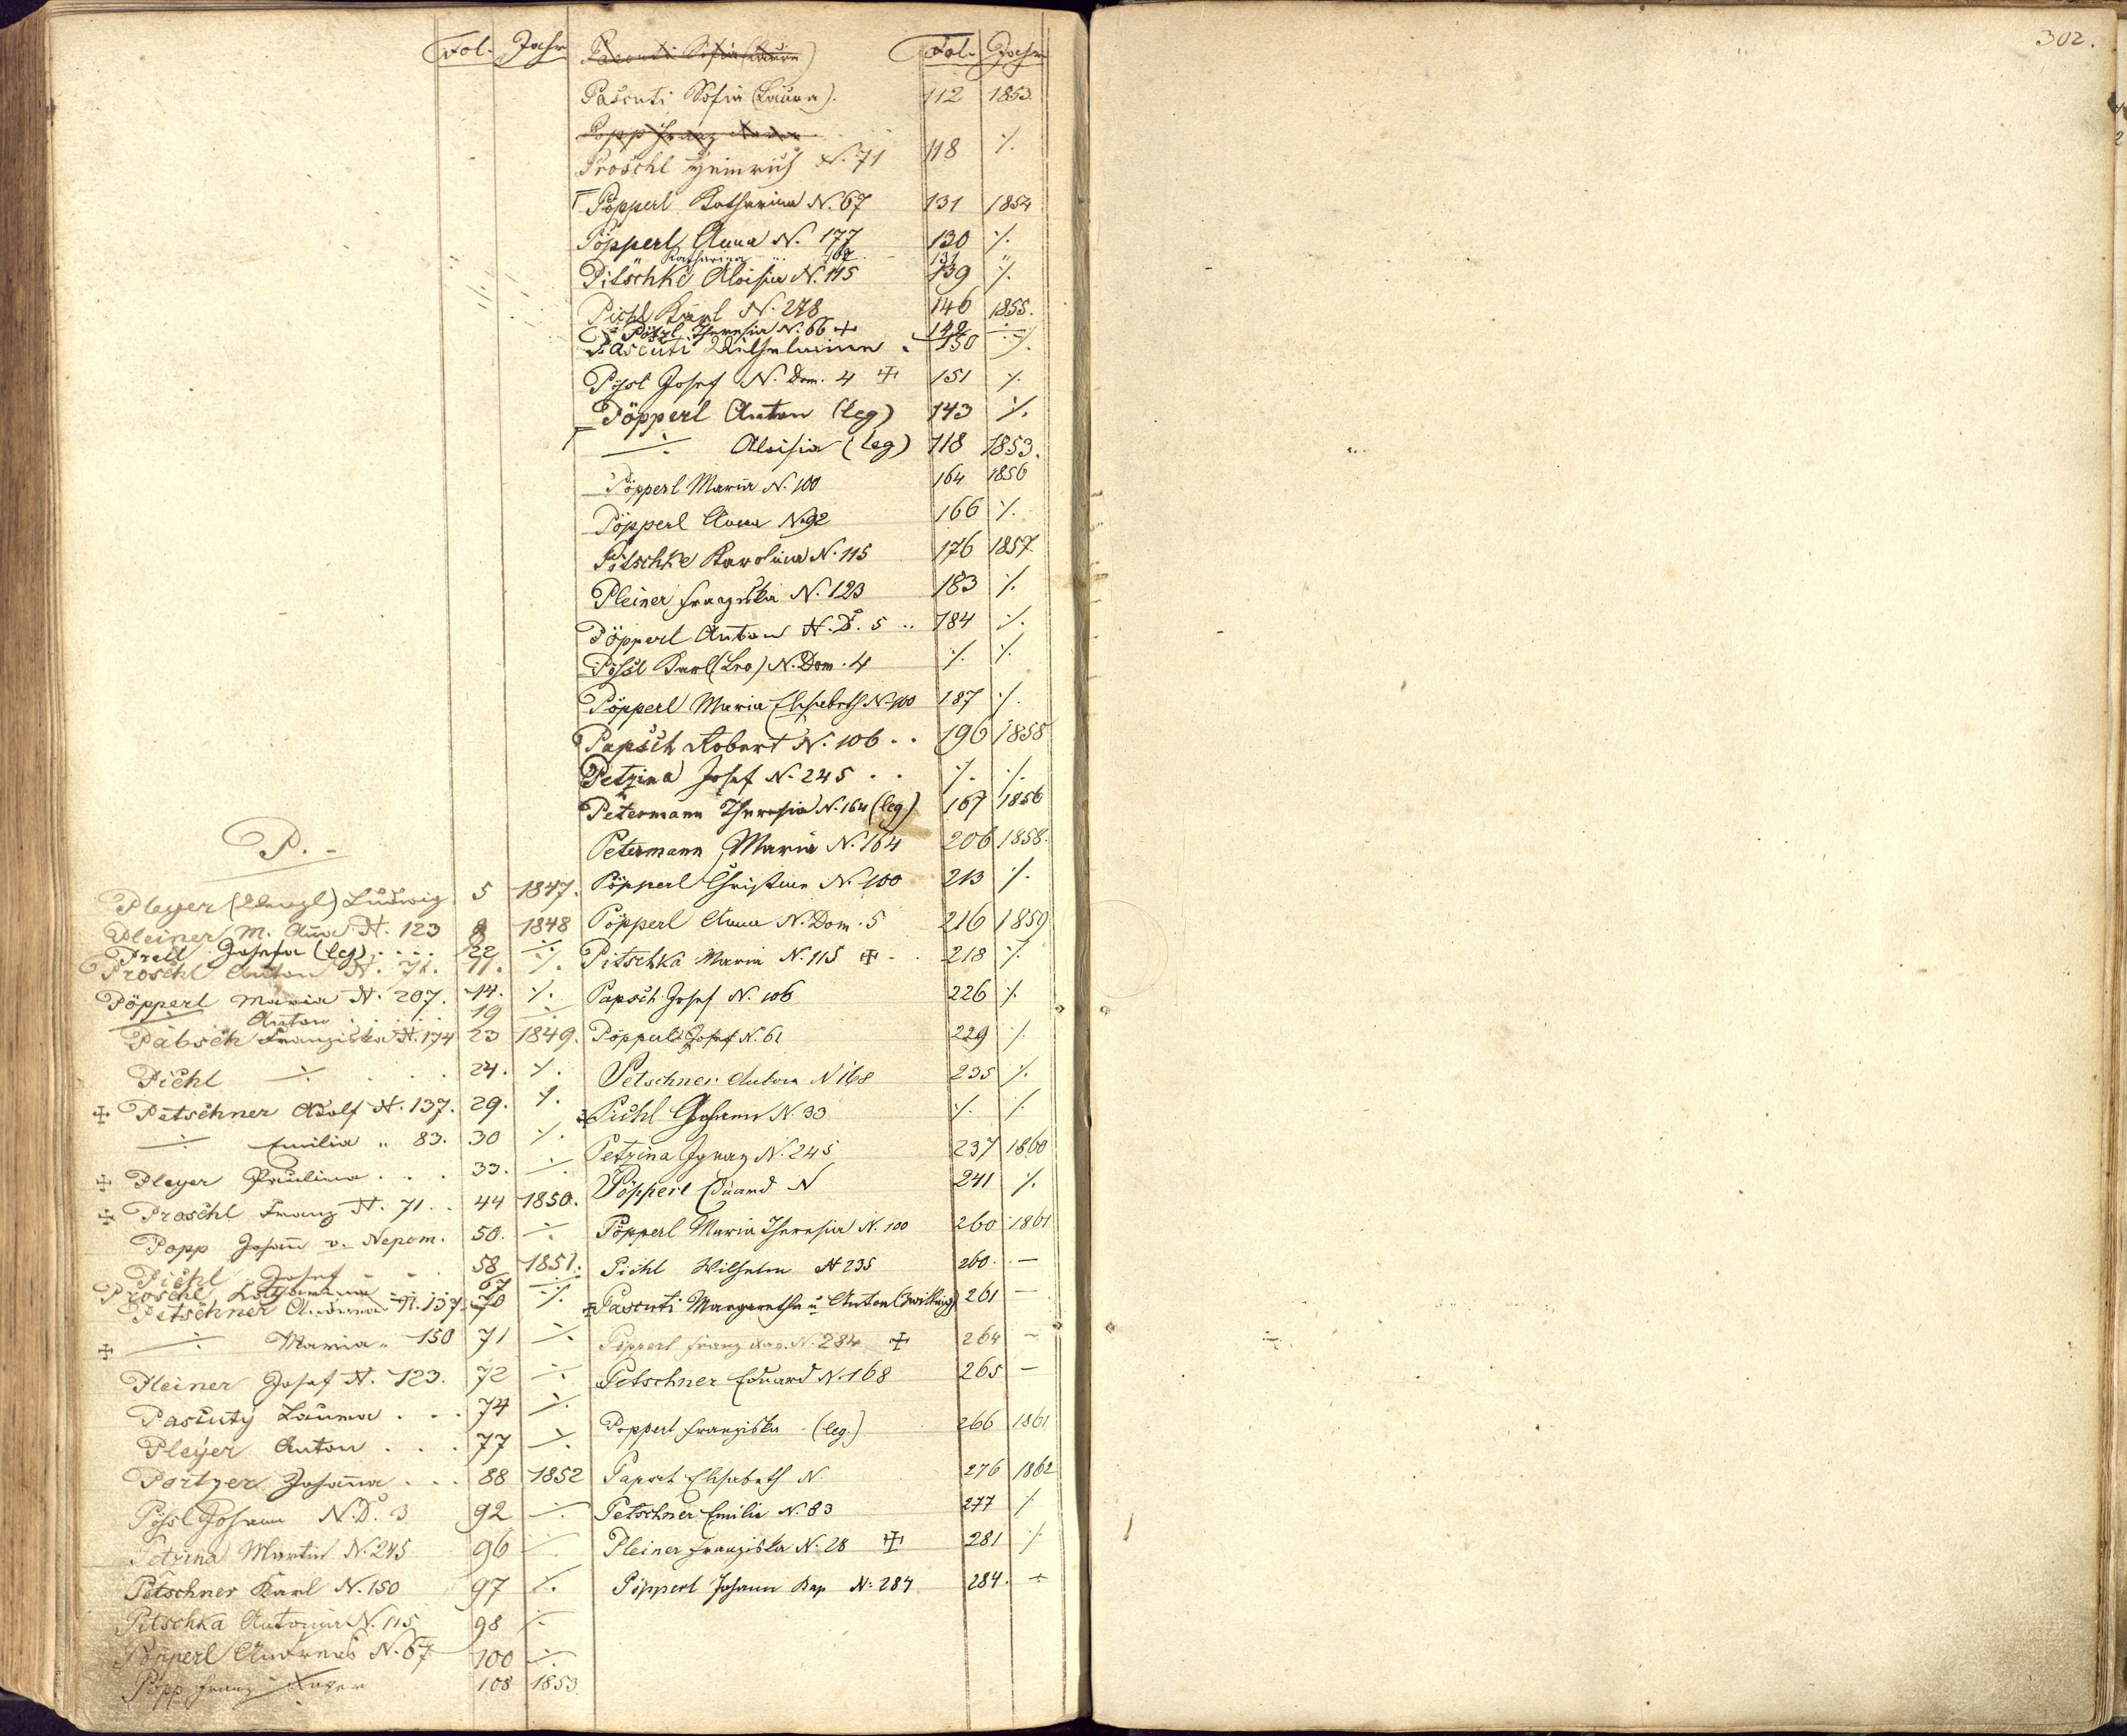 Fol. Jahr
P. -
Pleyer (Wenzl) Ludwig. 5 1847.
Pleiner M. Anna N. 123 8 1848
Prell Josefa (leg) . . . . 22 ·/·
Proschl Anton N. 71. 11. ·/·
Pöpperl Maria N. 207. 14. ·/·
·/· Anton . . . . . 19 ·/·
Pabsch Franziska N. 174 23 1849.
Pichl ·/· . . . 24. ·/·
✠ Petschner Adolf N. 137. 29. ·/·
·/· Emilia „ 83. 30 ·/·
✠ Pleyer Paulina . . . 33. ·/·
✠ Proschl Franz N. 71 . . 44 1850.
Popp Johann v. Nepom. 50. ·/·
Pichl Josef - - 58 1851.
Proschl 67 ·/·
Petschner N. 137 70 ·/·
✠ ·/· Maria „ 150 71 ·/·
Pleiner Josef N. 123. 72 ·/·
Pascuty Laura . . . 74 ·/·
Pleyer Anton . . . 77 ·/·
Portzer Johanna . . . 88 1852
Pössl Johann N. D. 3 92 ·/·
Petzina Martin N. 245 96 ·/·
Petschner Karl N. 150 97 ·/·
Pitschka Antonia N. 115 98 ·/·
Pöpperl Andreas N. 67 100 ·/·
Popp Franz Xaver 108 1853
Fol. Jahr
Pascuti Sofia (Laura)
Pascuti Sofia (Laura). 112 1853.
Popp Franz Xaver
Proschl Heinrich N. 71 118 ·/·
Pöpperl Katharina N. 67 131 1854
Pöpperl Anna N. 177 130 ·/·
„ Katharina „ 131 „
Pitschke Aloisia N. 115 139 ·/·
Pichl Karl N. 278 146 1855.
Pössl Theresia N. 66 ✠ 149 ·/·
Pascuti Wilhelmine . 150 ·/·
Pössl Josef N. Dom. 4 ✠ 151 ·/·
Pöpperl Anton (leg) 143 ·/·
·/· Aloisia (leg) 118 1853.
Pöpperl Maria N. 100 164 1856
Pöpperl Anna N. 92 166 ·/·
Pitschke Karolina N. 115 176 1857
Pleiner Franziska N. 123 183 ·/·
Pöpperl Anton N. D. 5 .. 184 ·/·
Pössl Karl (Leo) N. Dom. 4 ·/· ·/·
Pöpperl Maria Elisabeth N. 100 187 ·/·
Papsch Robert N. 106 . . 196 1858
Petzina Josef N. 245 . . ·/· ·/·
Petermann Theresia N. 164 (leg) 167 1856
Petermann Maria N. 164 206 1858.
Pöpperl Christine N. 100 213 ·/·
Pöpperl Anna N. Dom. 5 216 1859
Pitschka Maria N. 115 ✠ - . 218 ·/·
Papsch Josef N. 106 226 ·/·
Pöpperl Josef N. 61 229 ·/·
Petschner Anton N 168 235 ·/·
✠ Pichl Johann N. 33 ·/· ·/·
Petzina Ignaz N. 245 237 1860
Pöpperl Eduard N 241 ·/·
Pöpperl Maria Theresia N. 100 260 1861
Pichl Wilhelm N 235 260. —
✠ Pascuti Margaretha u. Anton (Zwilling) 261 —
Pöpperl Franz Xav. N. 284 ✠ 264 —
Petschner Eduard N. 168 265 —
Poppert Franziska (leg.) 266 1861
Papsch Elisabeth N. 276 1862
Petschner Emilie N. 83 277 ·/·
Pleiner Franziska N. 28 ✠ 281 ·/·
Pöpperl Johann Kap N: 284 284. ·/·
302.